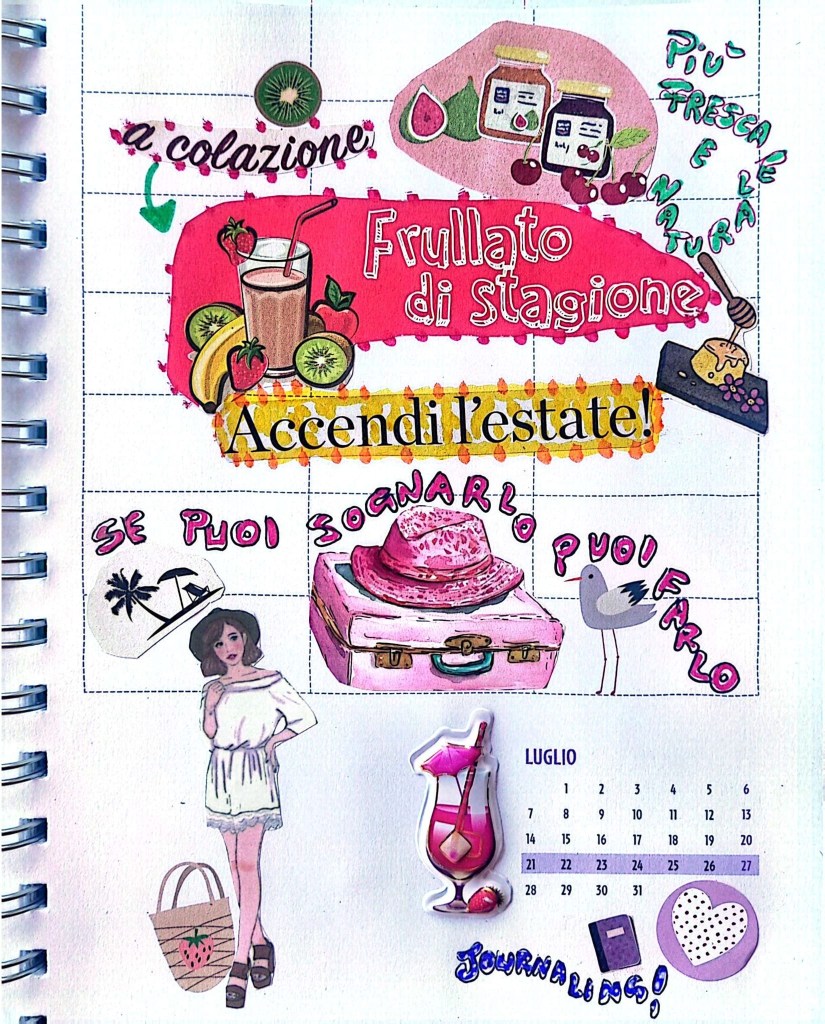 a colazione
Più
fresca
e
la
natura
e
Frullato
di stagione
Accendi l'estate!
SE PUOI SOGNARLO PUOI FARLO
LUGLIO
1 2 3 4 5 6
7 8 9 10 11 12 13
14 15 16 17 18 19 20
21 22 23 24 25 26 27
28 29 30 31
JOURNALING!